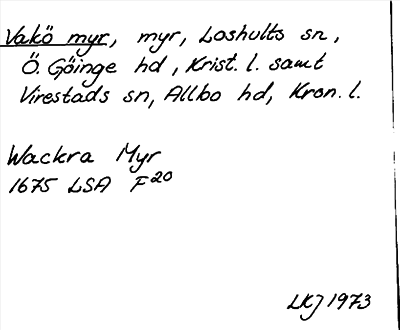 Vakö myr, myr, Loshults sn,
Ö. Göinge hd, Krist. l. samt
Virestads sn, Allbo hd, Kron. l.
Wackra Myr
1675 LSA F20
LKJ 1973